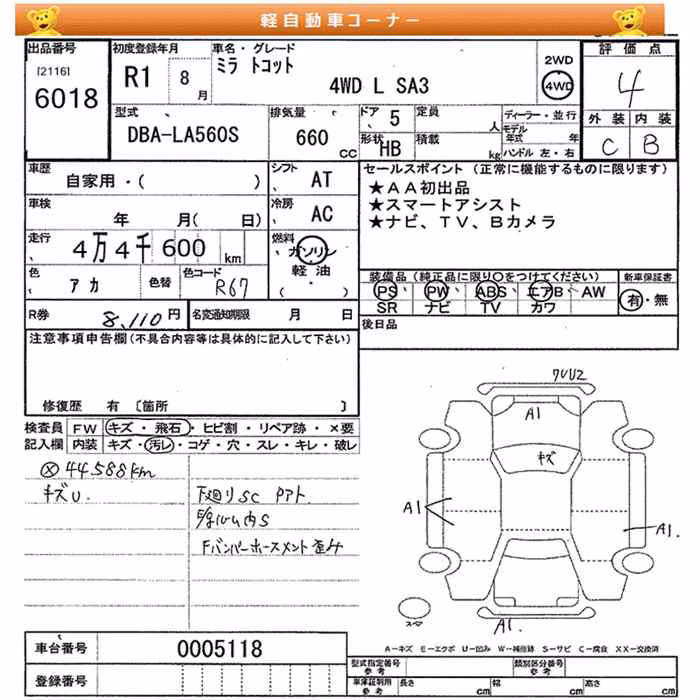 軽自動車コーナー
出品番号
[2116]
6018
初度登録年月
R1 8月
車名・グレード
ミラ トコット
4WD L SA3
2WD
4WD
評価点
4
外装 内装
C B
型式
DBA-LA560S
排気量
660 CC
ドア 5
形状 HB
定員 人
積載 kg
ディーラー・並行
モデル年式 年
ハンドル 左・右
車歴
自家用・( )
シフト
AT
車検
年 月( 日)
冷房
AC
走行
4万4千600 km
燃料
ガソリン
軽油
( )
色
アカ
色替
色コード
R67
R券
8,110円
名変通知期限 月 日
セールスポイント(正常に機能するものに限ります)
★AA初出品
★スマートアシスト
★ナビ、TV、Bカメラ
装備品(純正品に限り○をつけてください)
PS PW ABS エアB AW
SR ナビ TV カワ
新車保証書
有・無
後日品
注意事項申告欄(不具合内容等は具体的に記入して下さい)
修復歴 有 〔箇所 〕
検査員記入欄
FW キズ・飛石・ヒビ割・リペア跡・×要
内装 キズ・汚レ・コゲ・穴・スレ・キレ・破レ
44.588km
キズU.
下廻りSC
内S
Fバンパーホースメント歪み
A1
キズ
A1
A1.
A1.
車台番号
0005118
登録番号
A-キズ E-エクボ U-凹み W-補修跡 S-サビ C-腐食 XX-交換済
型式指定番号 参考
類別区分番号 参考
車庫証明用 参考
長さ cm
幅 cm
高さ cm